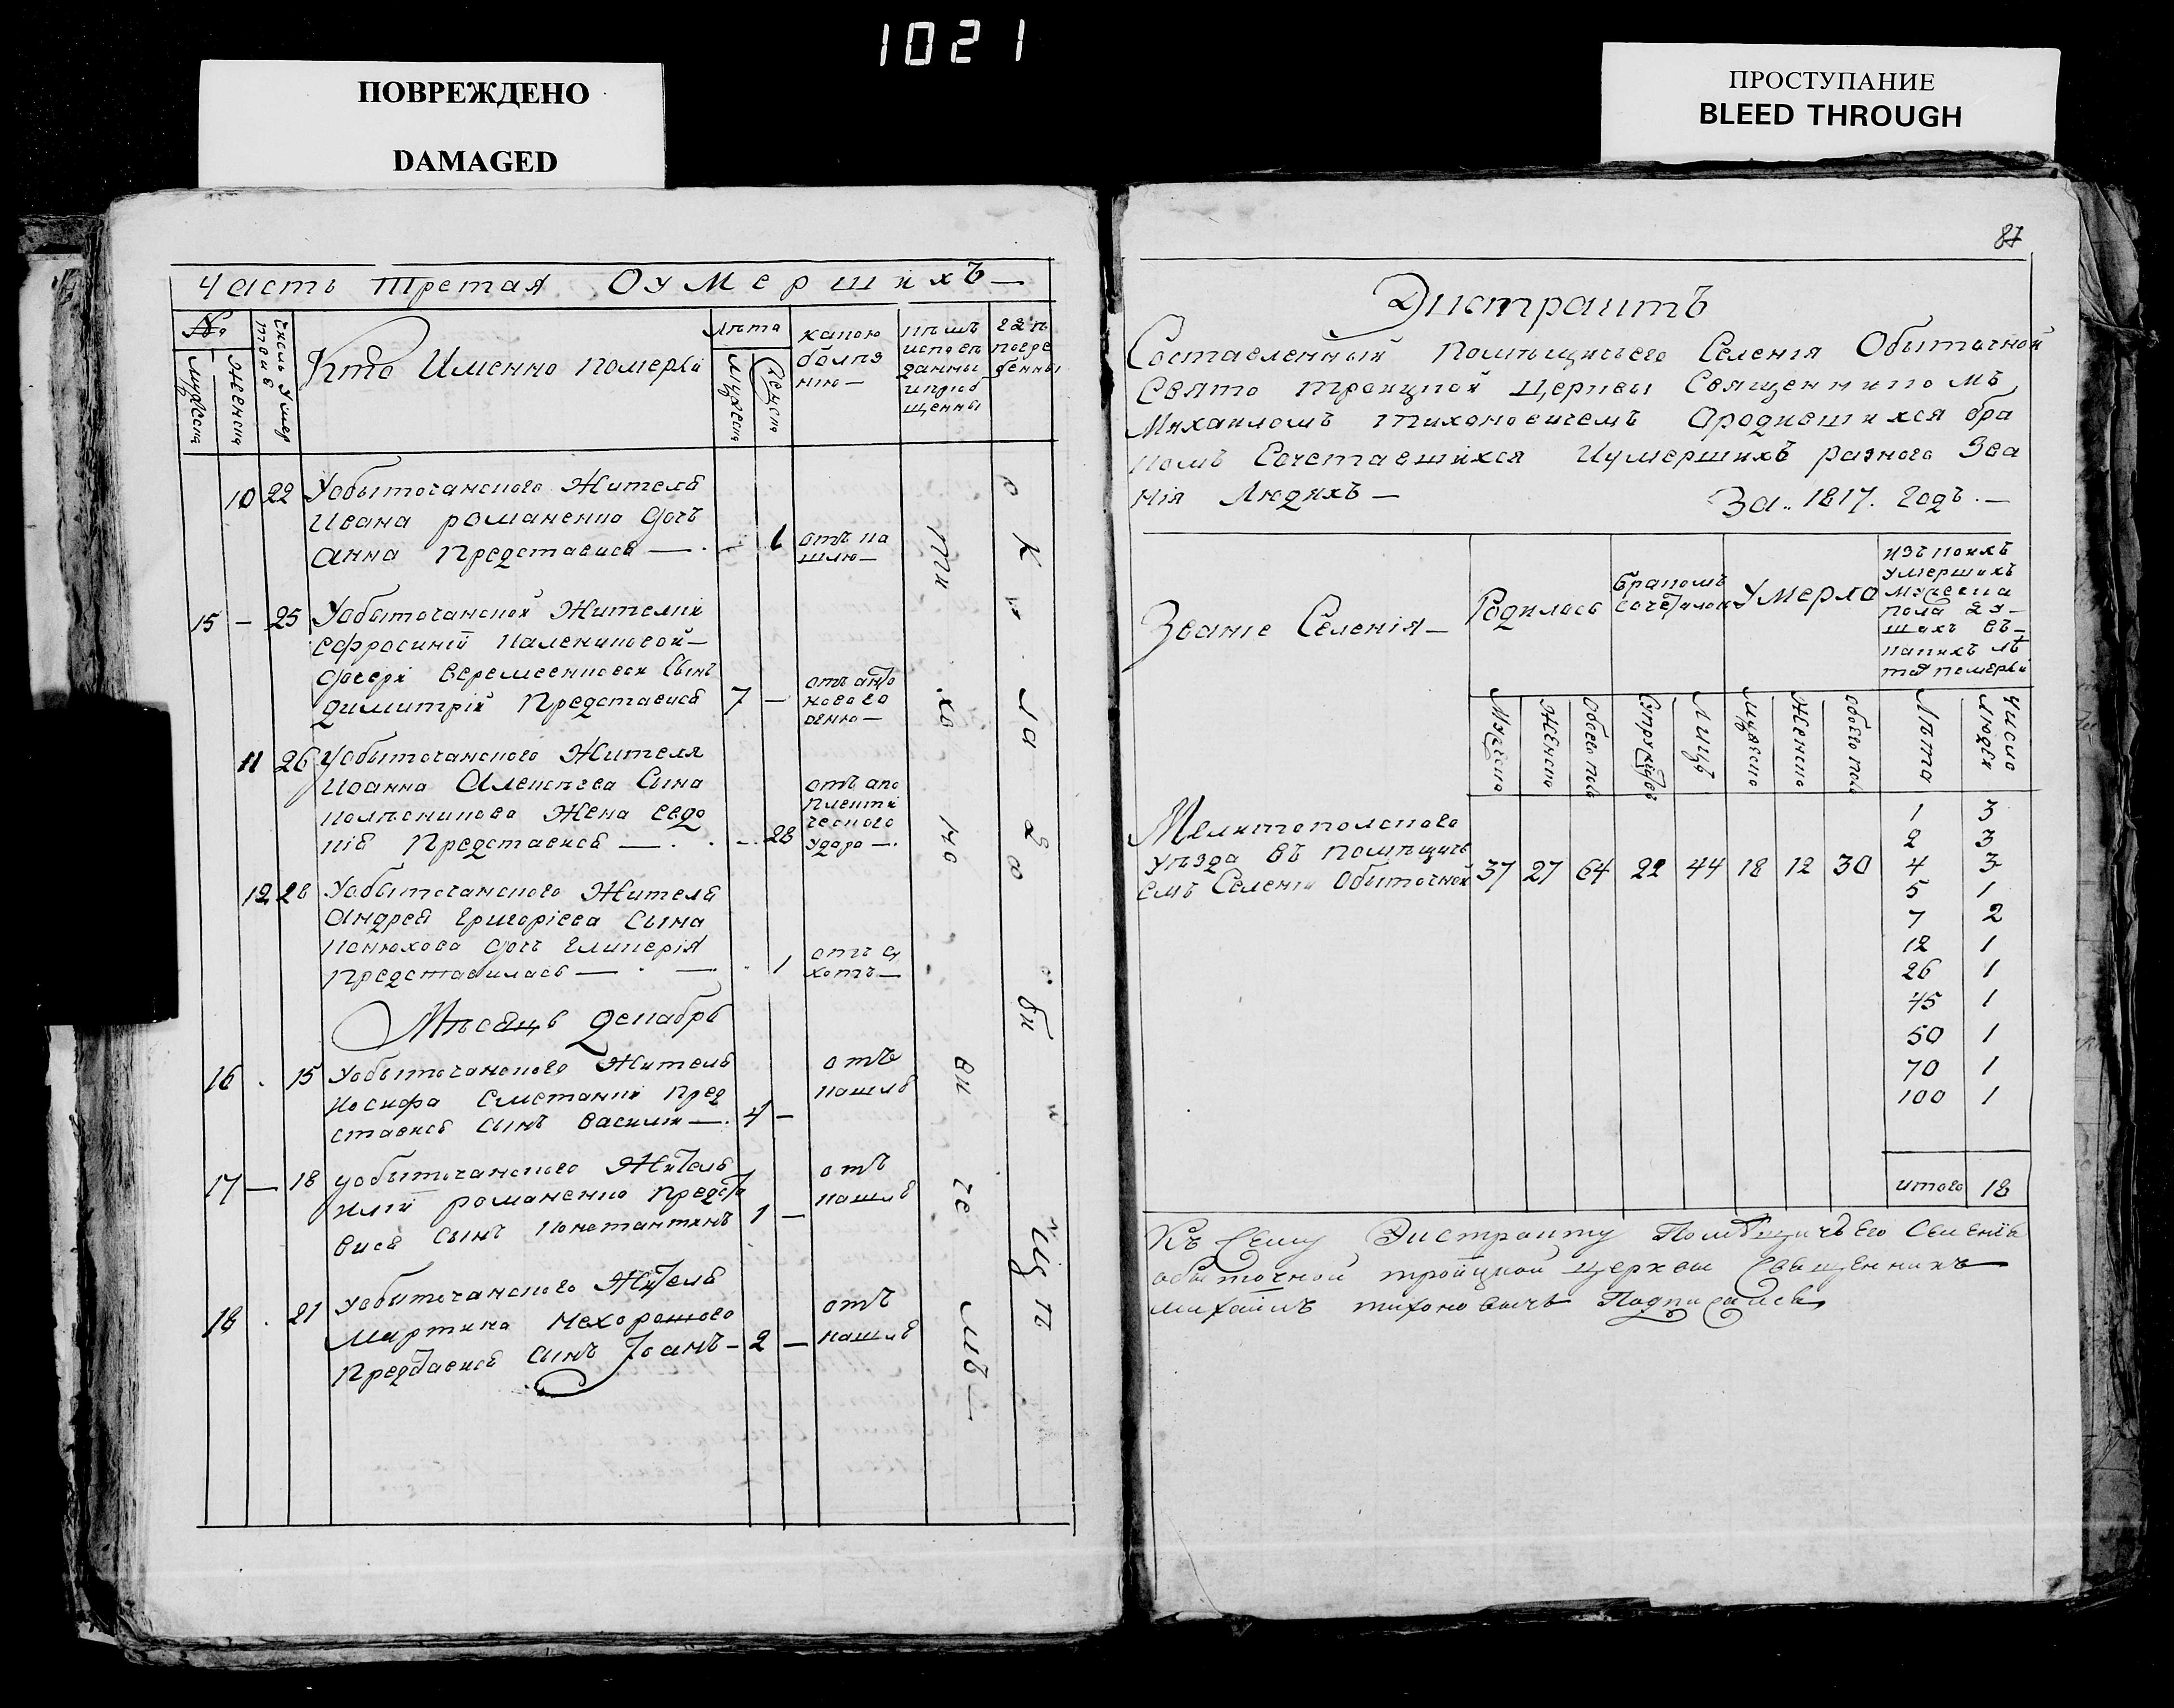 1021
ПОВРЕЖДЕНО
DAMAGED
ПРОСТУПАНИЕ
BLEED THROUGH
Часть третая Оумершихъ —
№
Мужеска
Женска
Кто Именно померли
Лѣта
Мужеска
Женска
какою
болѣз
нию —
кѣмъ
исповѣ
данны
иприоб
щенны
гдѣ п
погре
бенны
10 22 Уобыточанского Жителя
Ивана романенко дочь
Анна Преставися — 1 отъ ка
шлю —
15 — 25 Уобыточанской Жителки
Ефросинїи
дочери Веремеенковой Сынъ
Димитрїй Преставися 7 — отъ анто
нового
огню —
11 26 Уобыточанского Жителя
Иоанна Алексѣева Сына
Колпачникова Жена Евдо
кїя Преставися — 28 отъ апо
плекти
ческого
удара —
12 28 Уобыточанского Жителя
Андрея Григорїева Сына
Конюхова дочь Гликерїя
Представилась — 1 отъ су
хотъ —
Мѣсяцъ Декабрь
16 15 Уобыточанского Жителя
Иосифа Сметанки Пред
ставися Сынъ Василїи — 4 — отъ
кашля
17 — 18 уобыточанского Жителя
Илїи романенко Предста
вися Сынъ Константинъ 1 — отъ
кашля
18 21 Уобыточанского Жителя
Мартина Нехорошого
Представися Сынъ Іоанъ — 2 — отъ
кашля
Ти хо но ви че мъ —
87
Дистрактъ
Составленный Помѣщичьего Селенїя Обыточной
Свято троицкой Церквы Священникомъ
Михаиломъ тихоновичемъ Ородившихся бра
комъ Сочетавшихся Иумершихъ разного Зва
нїя Людяхъ —
За 1817. Годъ. —
Званїе Селенїя —
Родилось
Бракомъ
Сочетались
Умерло
изъ коихъ
умершихъ
мужеска
пола
въ
какихъ лѣ
та померли
Мужеска
Женско
Обоего пола
Супружествъ
Лицъ
Мужеско
Женско
обоего пола
Лѣта
Число
людей
Мелитополского
уѣзда въ Помѣщичь
емъ Селенїи Обыточной 37 27 64 22 44 18 12 30
1 3
2 3
4 3
5 1
7 2
12 1
26 1
45 1
50 1
70 1
100 1
итого 18
Къ Сему Дистракту Помѣщичьего Селенїя
обыточной троицкой Церкви Священникъ
михаилъ тихоновичъ Подписался